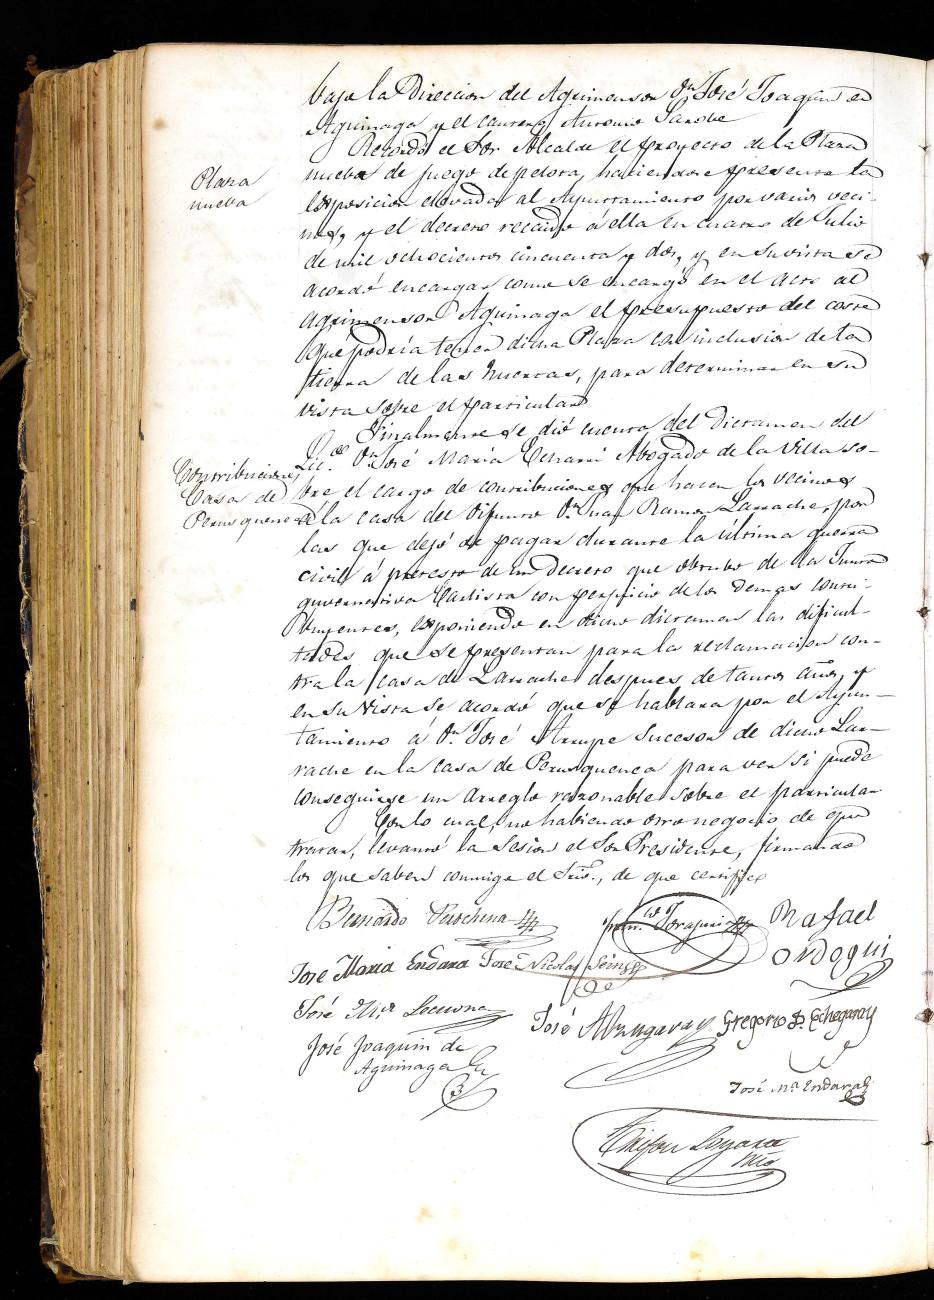 bajo la Direccion del Agrimensor Dn. José Joaquin de
Aguinaga y el Antonio
Recordó el Sor. Alcalde el proyecto de la Plaza
Plaza
nueba
nueba de juego de pelota, haciendose presente la
esposicion elevada al Ayuntamiento por varios veci-
nos, y el decreto recaido á ella en cuatro de Julio
de mil ochocientos cincuenta y dos, y en su vista se
acordó encargar como se encargó en el acto al
agrimensor Aguinaga el presupuesto del coste
que podria tener dicha Plaza con inclusion de la
tierra de las huertas, para determinar en su
vista sobre el particular
Finalmente se dió cuenta del Dictamen del
Lic.do Dn. José Maria Echarri Abogado de la Villa so-
Contribuciones
Casa de
Perusquenea
bre el cargo de contribuciones que hacen los vecinos
á la casa del difunto Dn. Juan Ramon Larrache, por
las que dejó de pagar durante la última guerra
civil á pretesto de un Decreto que obtubo de la Junta
guvernativa Carlista con perjuicio de los demas contri-
buyentes, esponiendo en dicho dictamen las dificul-
tades que se presentan para la reclamacion con-
tra la casa de Larrache despues de tantos años, y
en su vista se acordó que se hablara por el Ayun-
tamiento á Dn. José Arrupe Sucesor de dicho Lar-
rache en la casa de Perusquenea para ver si puede
conseguirse un arreglo razonable sobre el particular
Con lo cual, no habiendo otro negocio de que
tratar, levantó la sesion el Sor Presidente, firmando
los que saben conmigo el Srio., de que certifico
Bernardo
Rafael
Ordogui
José Maria Endara José Nicolas
José Mª Lecuona
José Gregorio D. Echegaray
José Joaquin de
Aguinaga
José Mª Endara
Srio